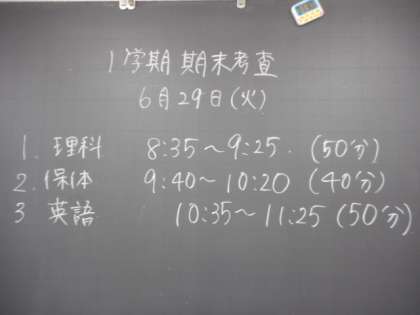 1学期 期末考査
6月29日(火)
1. 理科 8:35～9:25. (50分)
2. 保体 9:40～10:20 (40分)
3 英語 10:35～11:25 (50分)